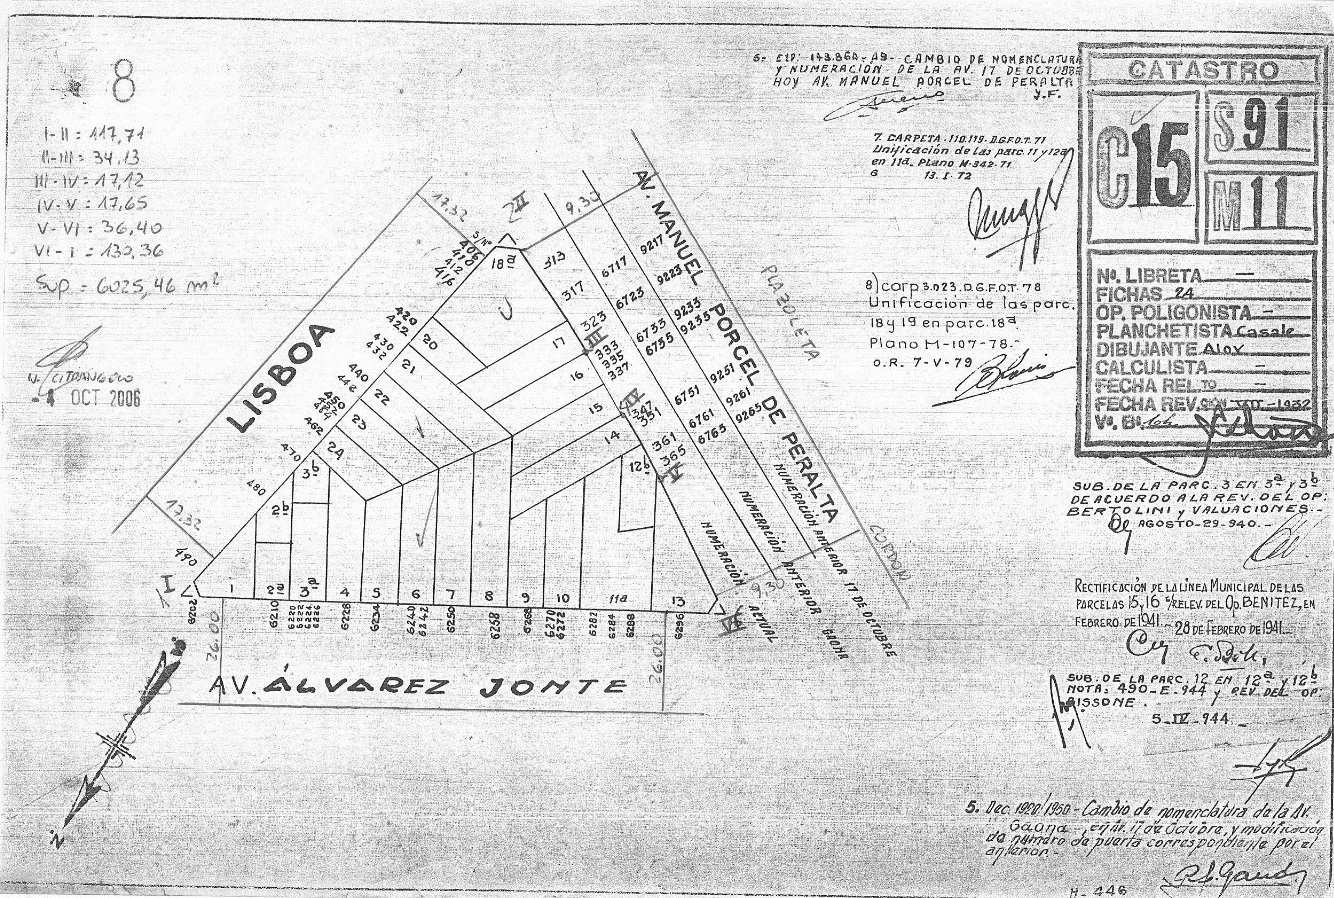 8
I-II = 117,71
II-III = 34.13
III-IV = 17,12
IV-V = 17,65
V-VI = 36,40
VI-I = 130,36
Sup = 6025,46 m²
N. CITRANGOLO
4 OCT 2006
6- EXP: 143.860-49- CAMBIO DE NOMENCLATURA
Y NUMERACIÓN DE LA AV. 17 DE OCTUBRE
HOY AV. MANUEL PORCEL DE PERALTA
J.F.
7. CARPETA. 110.119. D.G.F.O.T. 71
Unificación de las parc. 11 y 12a
en 11a. Plano M-342-71
13. I. 72
8) carp 3.023. D.G.F.O.T. 78
Unificación de las parc.
18 y 19 en parc. 18ª
Plano M-107-78.-
O.R. 7-V-79
CATASTRO
C15
S 91
M 11
Nº. LIBRETA —
FICHAS 24
OP. POLIGONISTA —
PLANCHETISTA Casale
DIBUJANTE Aloy
CALCULISTA —
FECHA REL. TO —
FECHA REV. CION VII-1932
Vº. Bº.
SUB. DE LA PARC. 3 EN 3ª Y 3b
DE ACUERDO A LA REV. DEL OP.
BERTOLINI Y VALUACIONES.-
AGOSTO-29-940.-
RECTIFICACIÓN DE LA LÍNEA MUNICIPAL DE LAS
PARCELAS 15, 16 S/RELEV. DEL OP. BENITEZ, EN
FEBRERO DE 1941.- 28 DE FEBRERO DE 1941.-
SUB. DE LA PARC. 12 EN 12ª Y 12b
NOTA: 490-E-944 Y REV. DEL OP.
BISSONE.
5-IV-944
5. Dec. 1920/1950 - Cambio de nomenclatura de la Av.
Gaona, en Av. 17 de Octubre, y modificación
de número de puerta correspondiente por el
anterior.-
H-446
LISBOA
17,32
17,32
S/Nº
406
410
412
416
420
422
430
432
440
442
450
454
462
470
480
490
AV. MANUEL PORCEL DE PERALTA
PLAZOLETA
CORDON
9,30
9,30
313
317
323
333
335
337
347
351
361
365
6717
6723
6733
6735
6751
6761
6765
9217
9223
9233
9235
9251
9261
9265
NUMERACIÓN ACTUAL
NUMERACIÓN ANTERIOR GAONA
NUMERACIÓN ANTERIOR 17 DE OCTUBRE
I
II
III
IV
V
VI
18ª
20
21
22
23
24
17
16
15
14
12b
3b
2b
1
2ª
3ª
4
5
6
7
8
9
10
11a
13
6202
6210
6220
6222
6224
6226
6228
6234
6240
6242
6250
6258
6268
6270
6272
6282
6284
6288
6296
26.00
26.00
AV. ÁLVAREZ JONTE
S
N